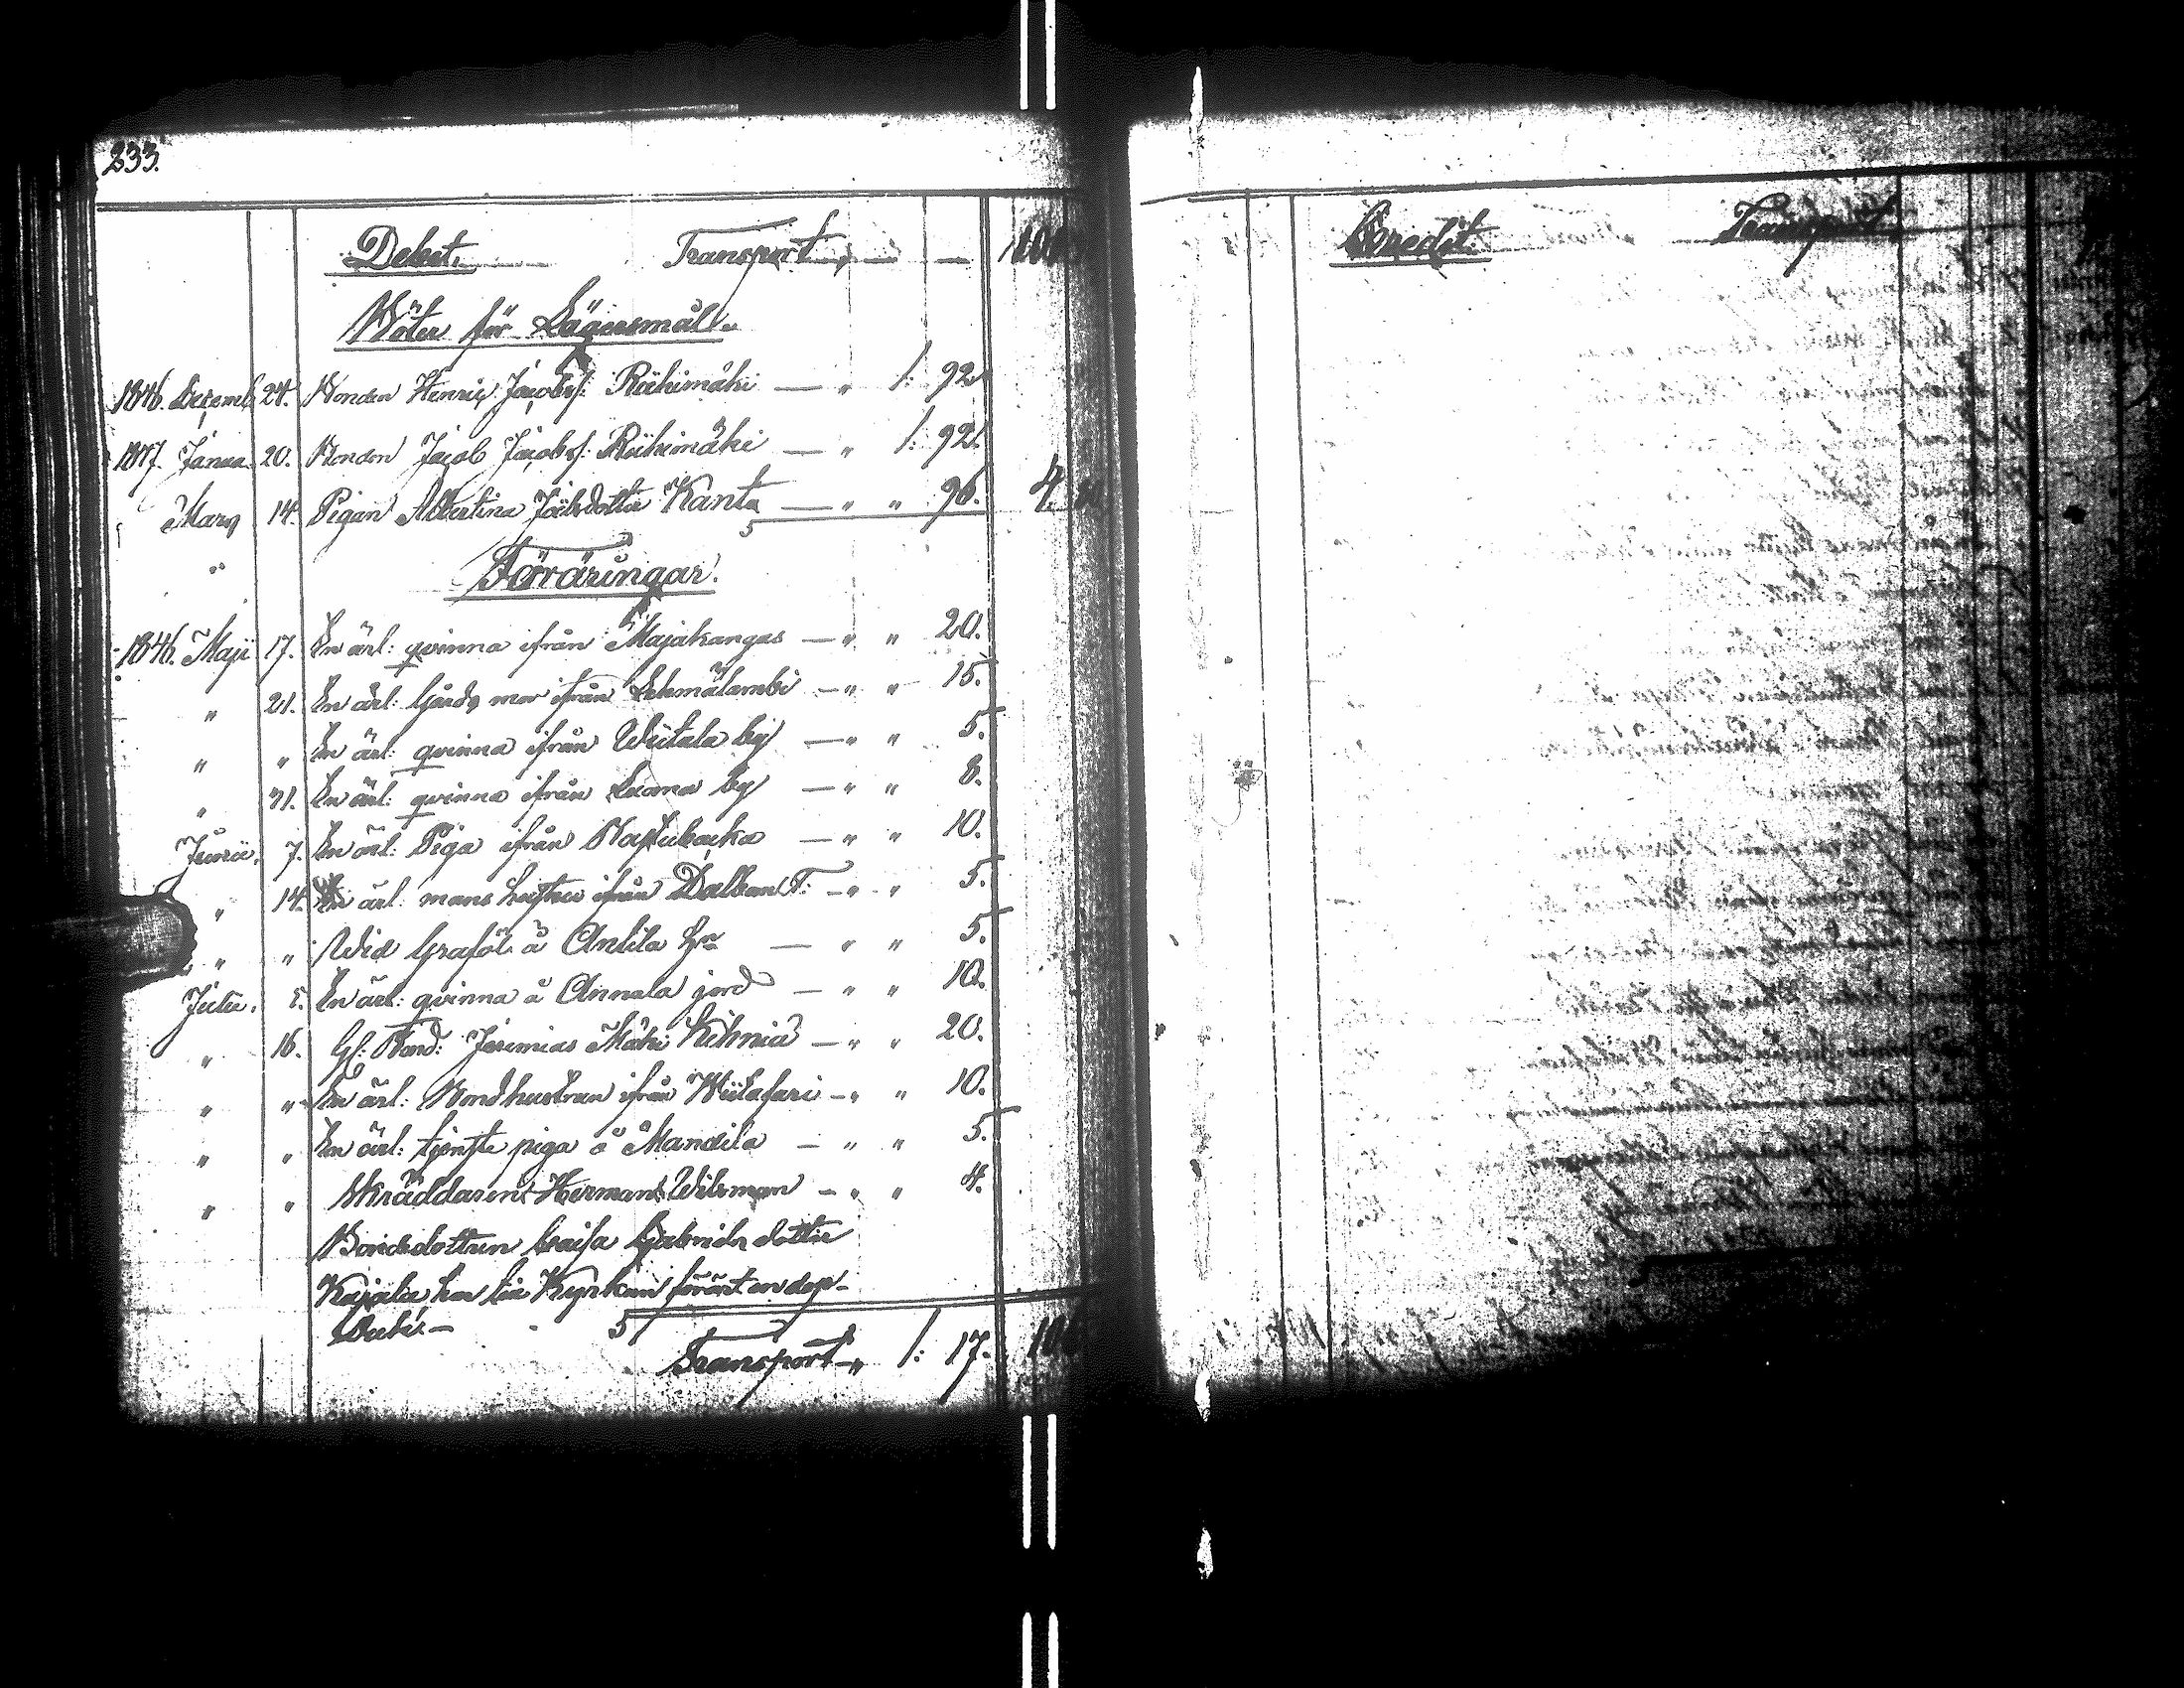 233.
Debet. Transport „ — — 10
Böter för Lägersmål.
1846. Decemb. 24. Bonden Henric Jacobs: Riihimäki — „ 1: 92.
1847. Janua. 20. Bonden Jacob Jacobs: Riihimäki — „ 1: 92.
Mars 14. Pigan Albertina Joelsdotter Kanta — „ „ 96. 4.
5
„ Föräringar.
1846. Maji 17. En ärl: qvinna ifrån Majakangas — „ „ 20.
„ 21. En ärl: Gårds mor ifrån Lehmälambi — „ „ 15.
„ „ En ärl: qvinna ifrån Wiitala by — „ „ 5.
„ 31. En ärl: qvinna ifrån Luoma by — „ „ 8.
Junii. 7. En ärl: Piga ifrån — „ „ 10.
„ 14. En ärl: mans hustru ifrån T: — „ „ 5.
„ „ Wid Graföl å Antila — „ „ 5.
Julii. 5. En ärl: qvinna å Annala jord — „ „ 10.
„ 16. Gl: Bond: Jeremias Mäki Kihniä — „ „ 20.
„ „ En ärl: Bondhustrun ifrån — „ „ 10.
„ „ En ärl: tjenste piga å Mandila — „ „ 5.
„ „ Skräddaren Herman — „ „ 4.
Bondedottren Caisa Gabriels dotter
har til Kyrkan förärt en dop-
Duk. —
5
Transport „ 1: 17. 10
Credit. Transport.